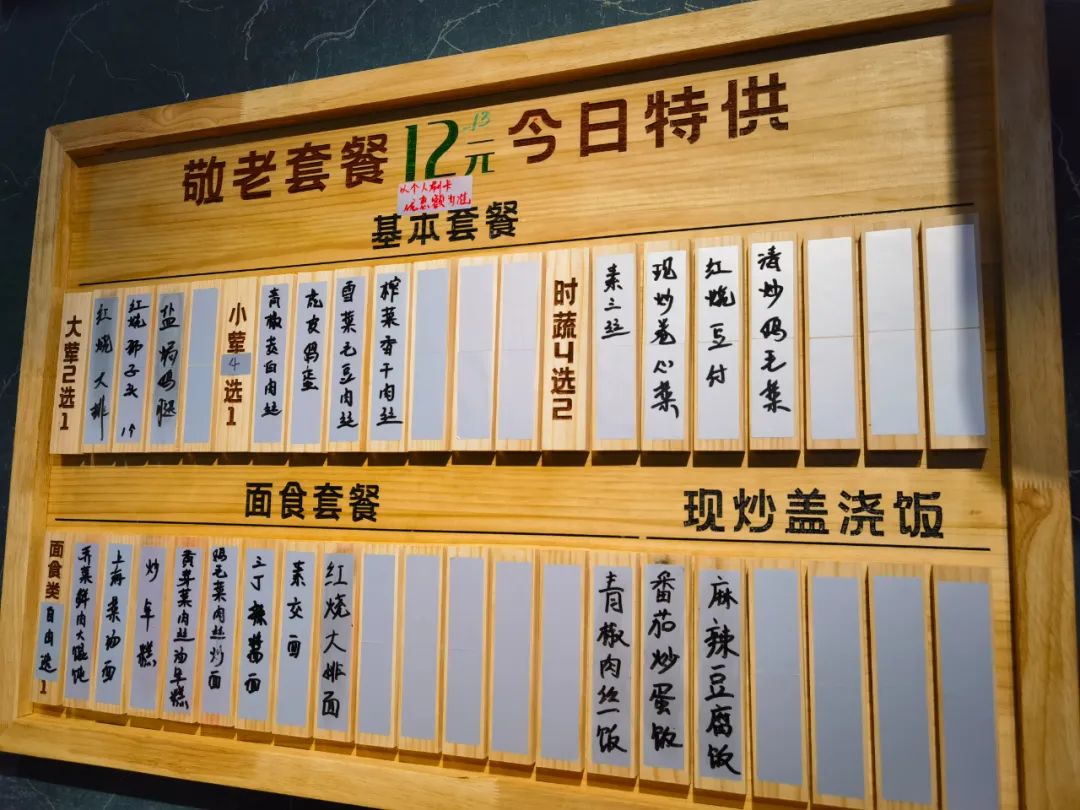 敬老套餐12-13元今日特供
以个人刷卡
优惠额为准
基本套餐
大荤2选1
红烧大排
红烧狮子头 1个
盐焗鸡腿
小荤4选1
青椒炒白肉丝
虎皮鸡蛋
雪菜毛豆肉丝
榨菜香干肉丝
时蔬4选2
素三丝
现炒卷心菜
红烧豆付
清炒鸡毛菜
面食套餐
面食类自由选1
荠菜鲜肉大馄饨
上海菜汤面
炒年糕
黄芽菜肉丝汤年糕
鸡毛菜肉丝炒面
三丁辣酱面
素交面
红烧大排面
现炒盖浇饭
青椒肉丝饭
番茄炒蛋饭
麻辣豆腐饭